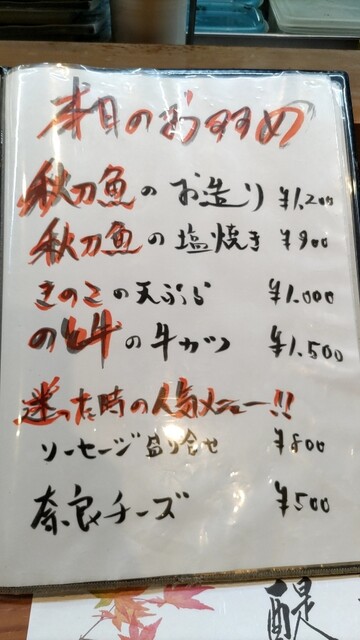 本日のおすすめ
秋刀魚のお造り ¥1,200
秋刀魚の塩焼き ¥900
きのこの天ぷら ¥1,000
の牛の牛カツ ¥1,500
迷った時の人気メニュー!!
ソーセージ盛り合せ ¥800
奈良チーズ ¥500
醍